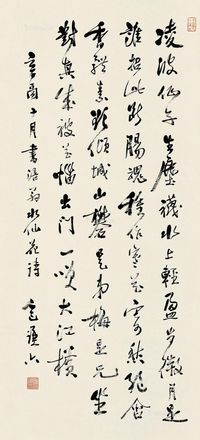 凌波仙子生塵襪水上輕盈步微月是
誰招此斷腸魂種作寒花寄愁絕含
香體素欲傾城山礬是弟梅是兄坐
對真成被花惱出門一笑大江橫
辛酉十月書涪翁水仙花詩